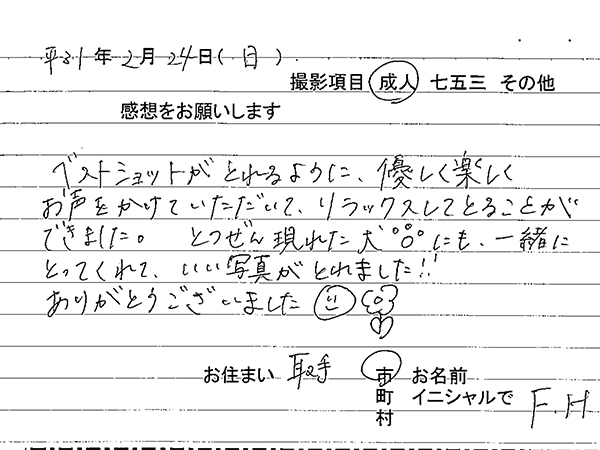 平31年2月24日(日)
撮影項目 成人 七五三 その他
感想をお願いします
ベストショットがとれるように、優しく楽しく
お声をかけていただいて、リラックスしてとることが
できました。 とつぜん現れた犬にも、一緒に
とってくれて、いい写真がとれました!!
ありがとうございました
お住まい 取手 市 お名前
町 イニシャルで F.H
村